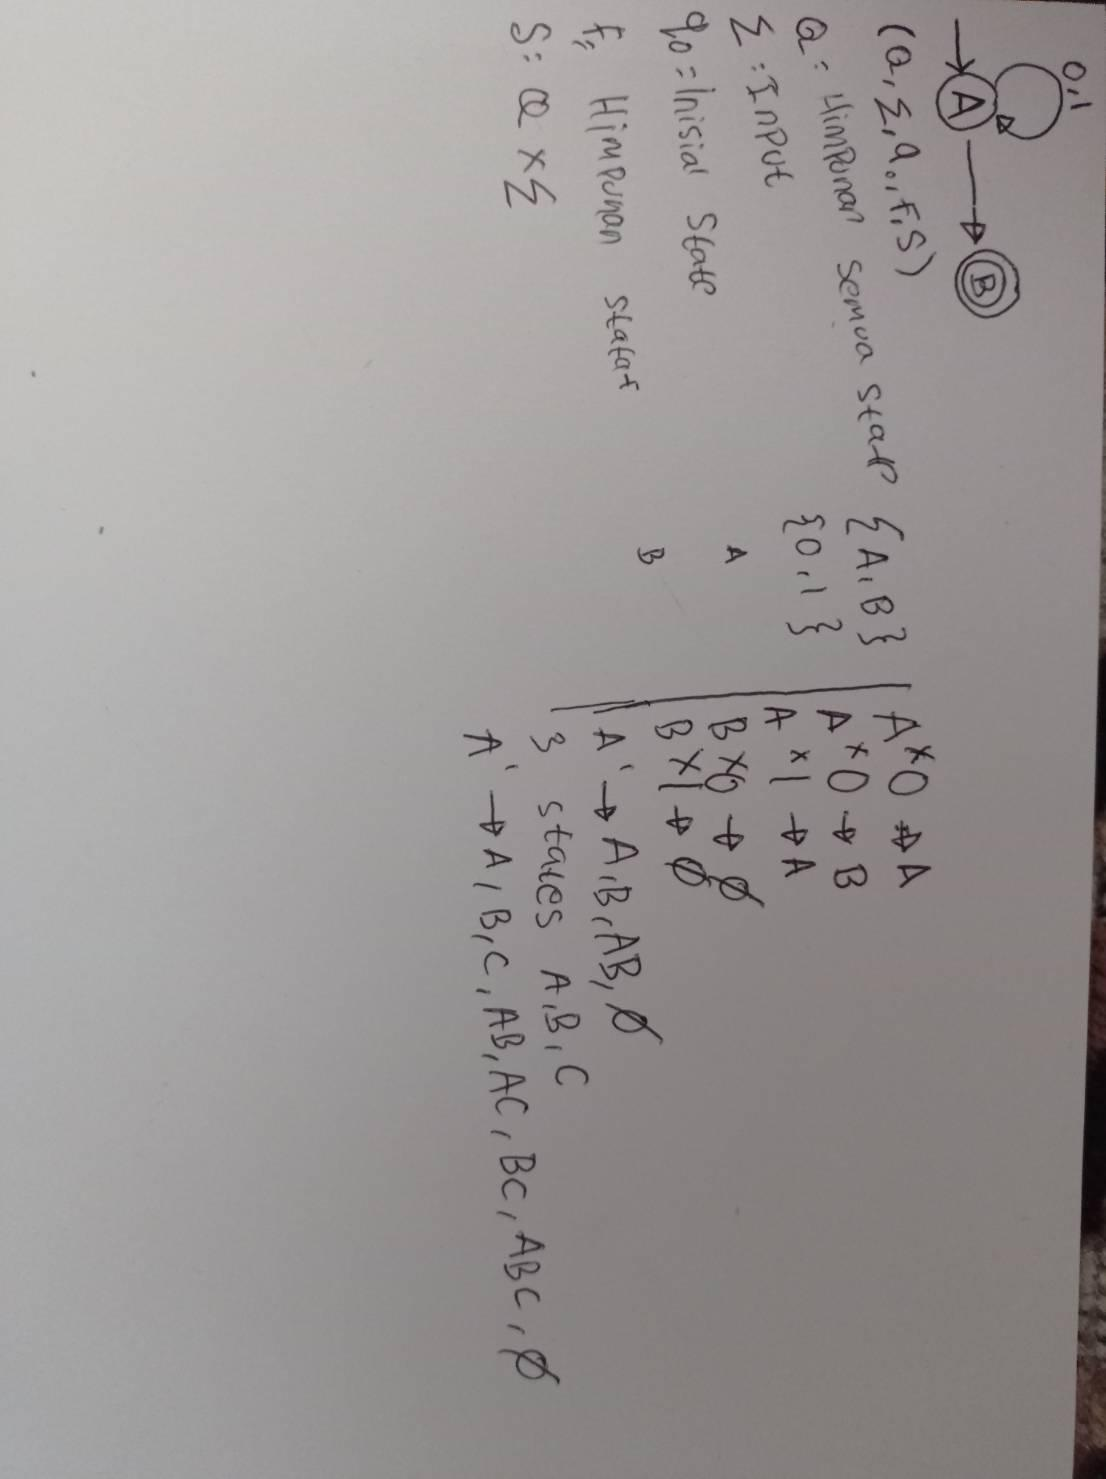 0,1
A
B
(Q, Σ, q0, F, S)
Q: Himpunan semua state {A, B}
Σ: Input {0, 1}
q0 = Inisial State A
F: Himpunan B
S: Q × Σ
A × 0 → A
A × 0 → B
A × 1 → A
B × 0 → Ø
B × 1 → Ø
A' → A, B, AB, Ø
3 states A, B, C
A' → A, B, C, AB, AC, BC, ABC, Ø